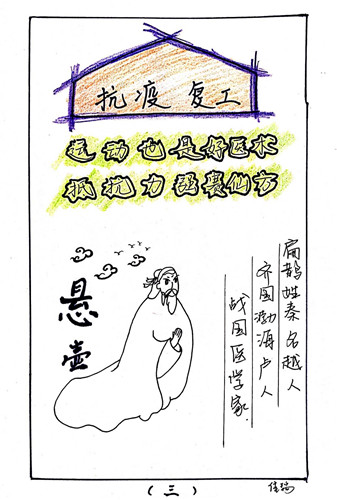 抗疫 复工
运动也是好医术
抵抗力强赛仙方
悬壶
扁鹊姓秦名越人
齐国渤海卢人
战国医学家.
(三)
佳瑞